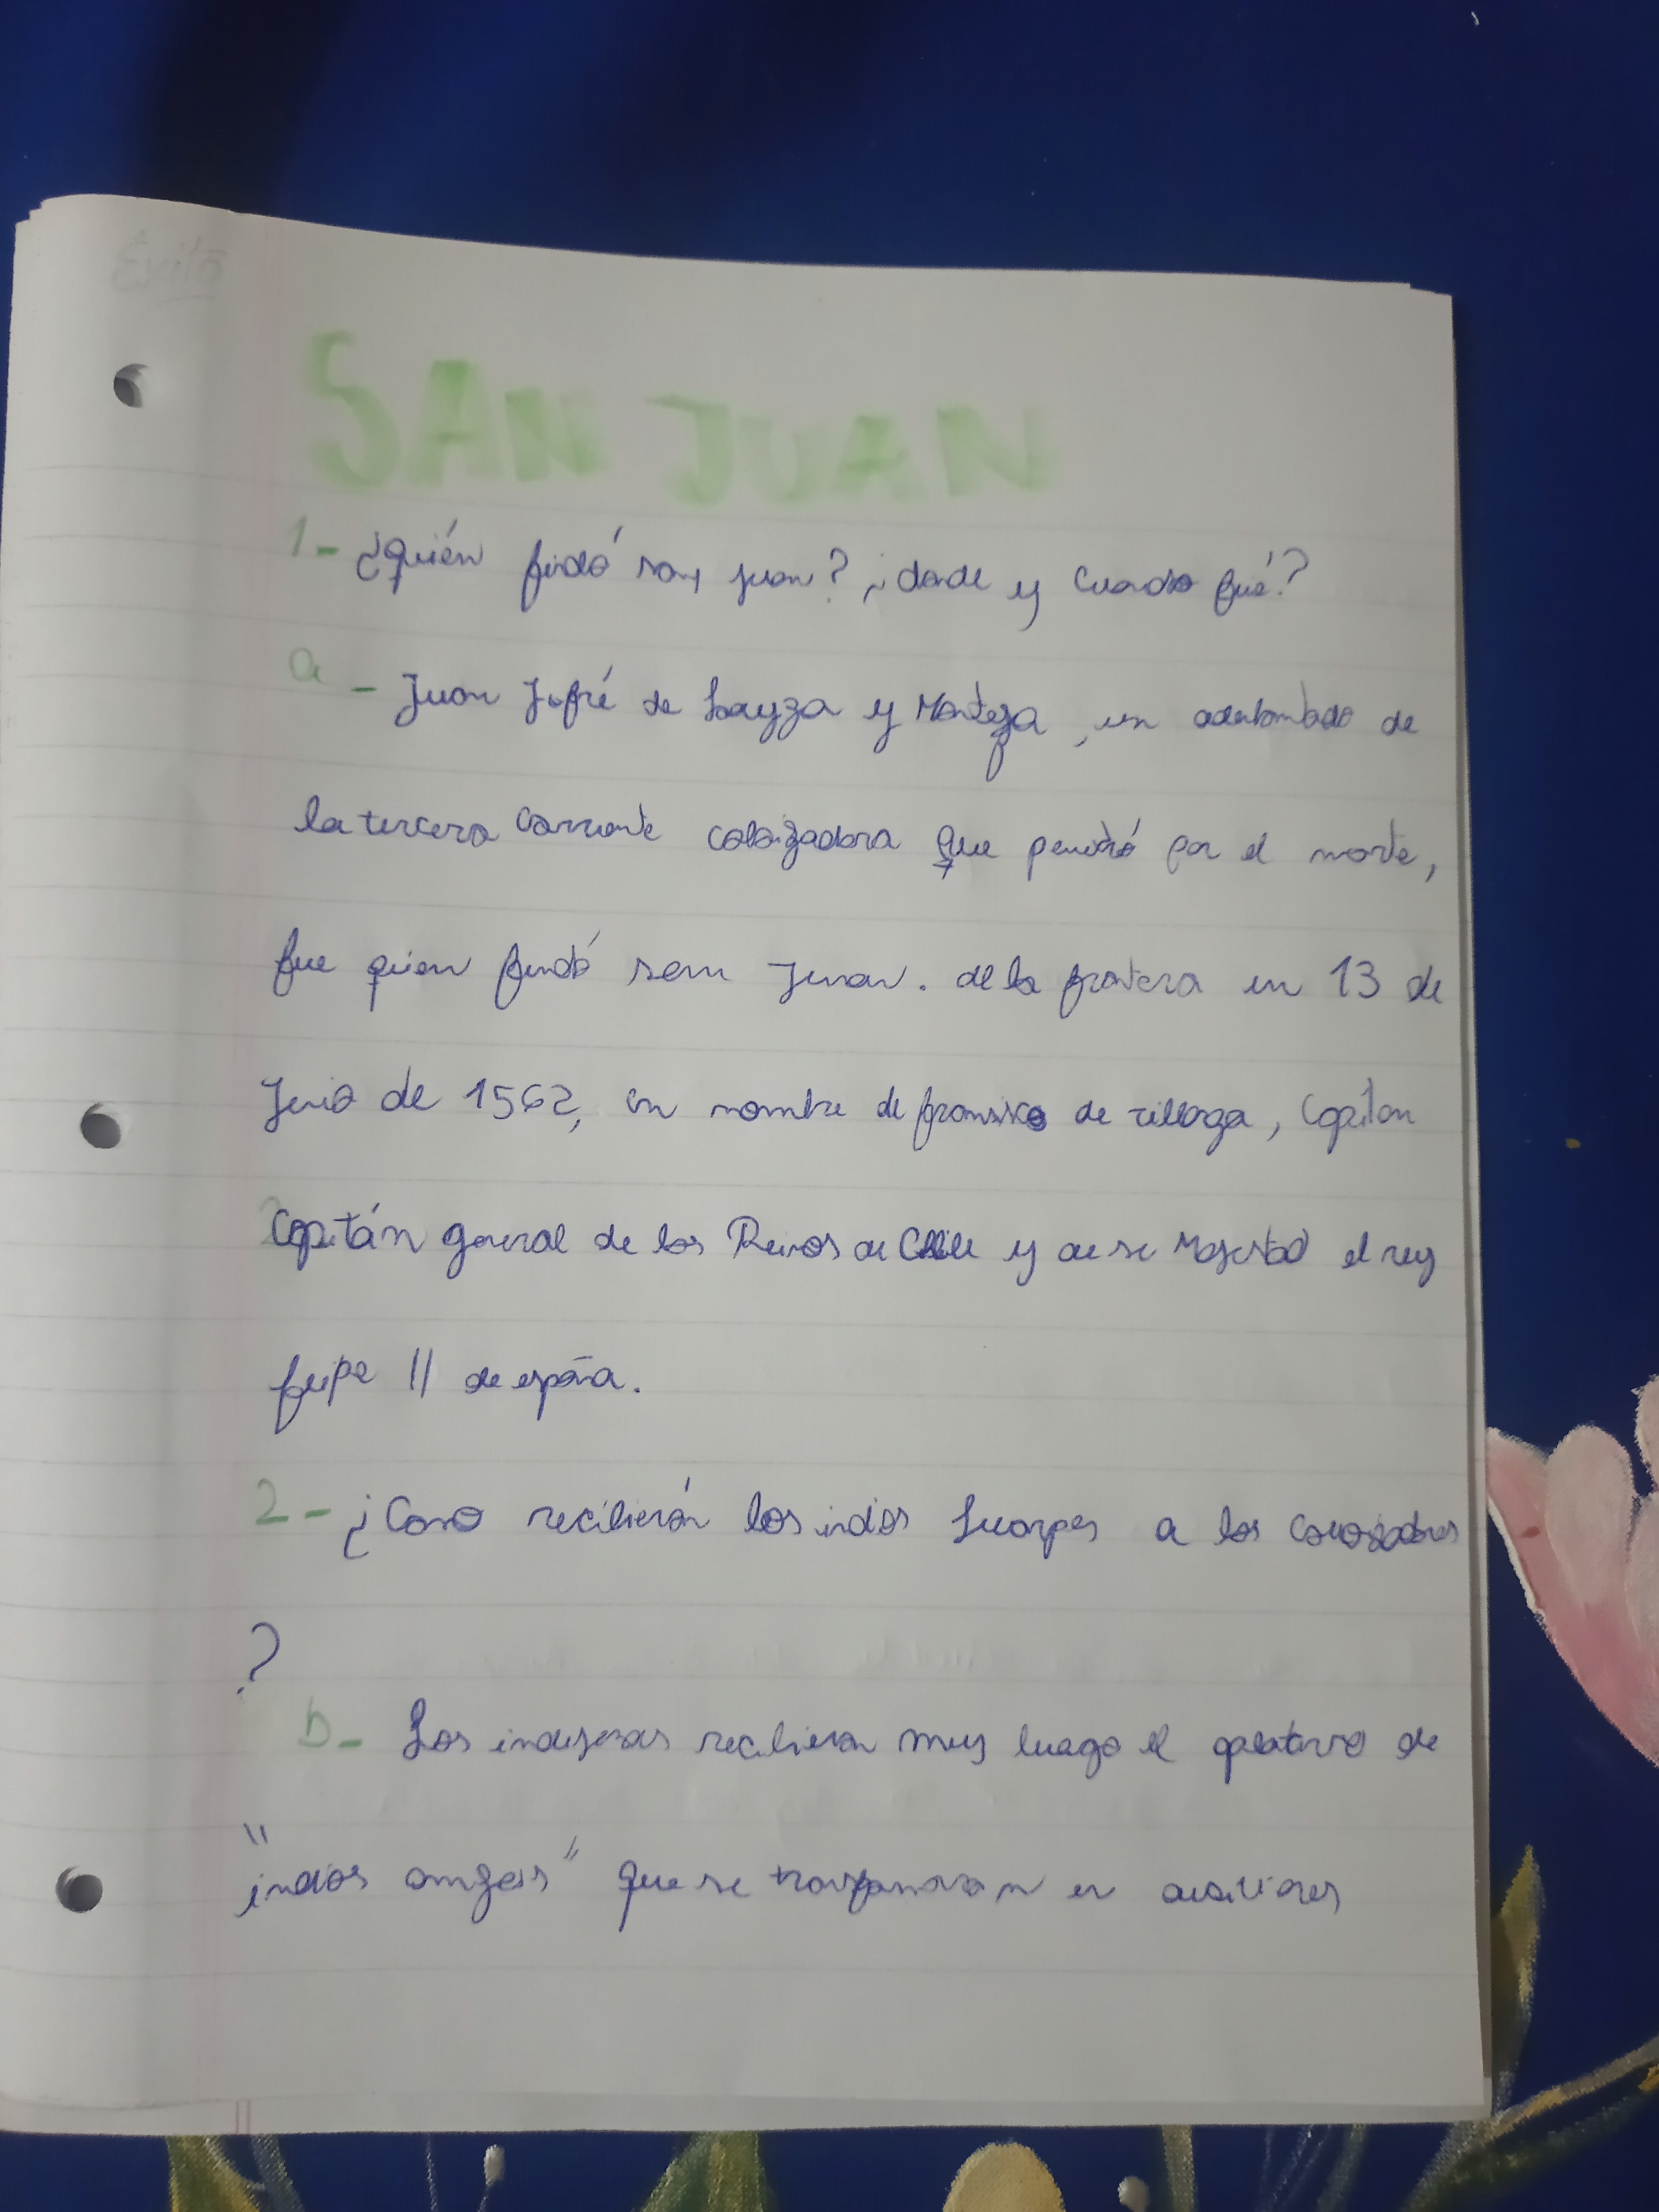 SAN JUAN
1- ¿Quién fundó san juan? ¿donde y cuando fué?
a - Juan Jofré de Loayza y Monteza, un adelantado de
la tercera corriente colonizadora que penetró por el norte,
fue quien fundó san Juan. de la frontera en 13 de
Junio de 1562, en nombre de fransisco de villagra, Capitan
Capitán general de los Reinos de Chile y de su Majestad el rey
felipe II de españa.
2- ¿Como recibierón los indios huarpes a los colonizadores
?
b- Los indigenas recibieron muy luego el apelativo de
"indios amigos" que se transformaron en auxiliares